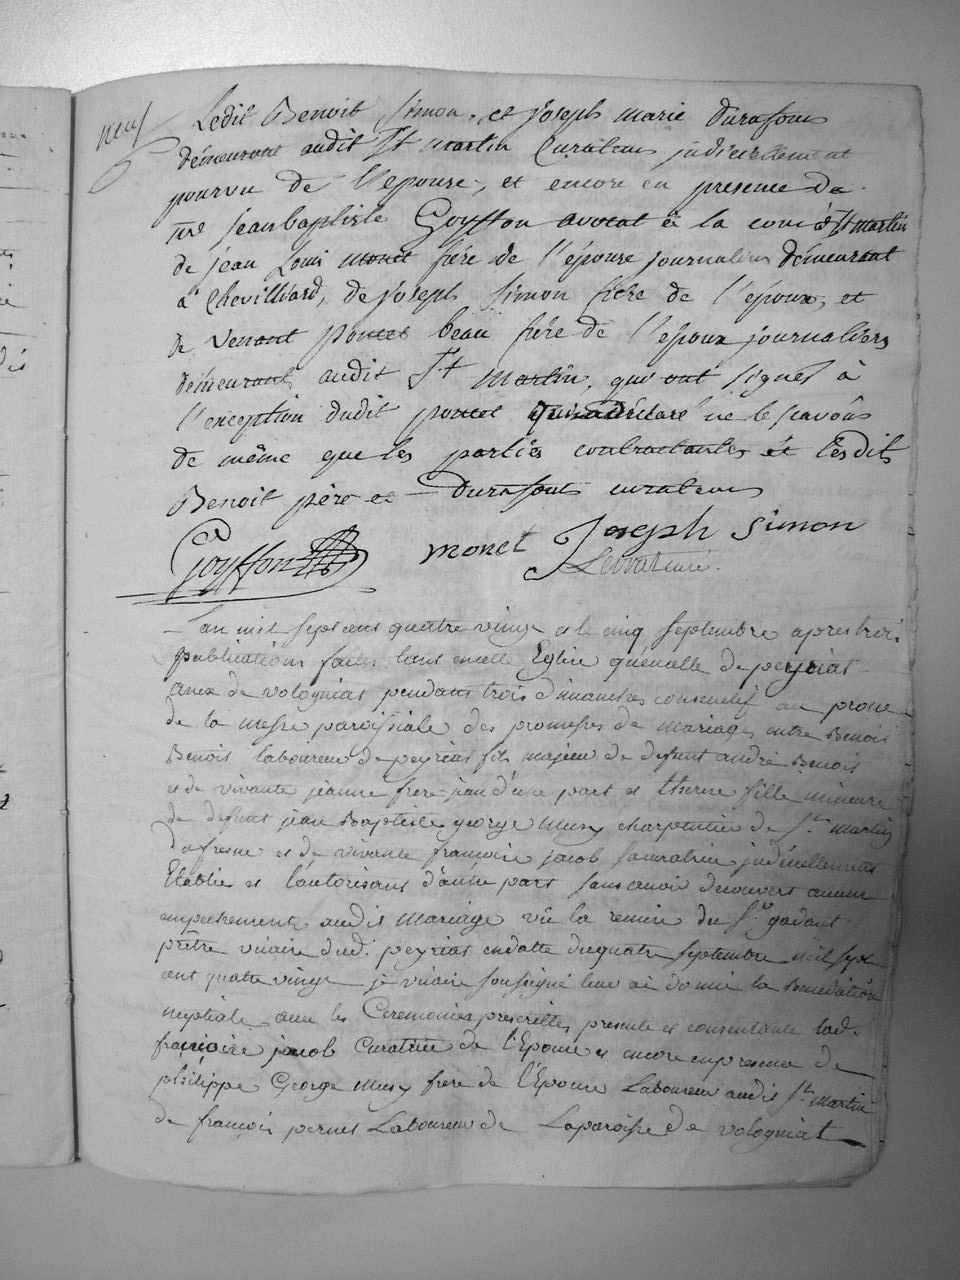 neuf
Ledit Benoit Simon, et joseph marie durafour
démeurant audit St martin Curateur judiciellement
pourvu de l'epouse, et encore en presence de
me jean baptiste Goyffon avocat à la cour à St martin
de jean Loui monet frére de l'épouse journaliers démeurant
à Chevilliard, de joseph Simon frére de l'époux, et
de Venant poncet beau frére de l'epoux journaliers
démeurants audit St Martin, qui ont signés à
l'exception dudit poncet qui a déclaré ne le scavoir
de même que les parties contractantes et lesdits
Benoit pére et durafour curateur
Goyffon monet Joseph Simon
L'an mil sept cent quatre vingt et le cinq septembre apres trois
publications faites tant en cette Eglise qu'en celle de peyriat
anex de volognat pendant trois dimanches consecutif au prone
de la messe paroissiale des promesses de mariage, entre Benoit
Benoit laboureur de peyriat fils majeur de defunt andré Benoit
et de vivante jeanne frere-jean d'une part et therese fille mineure
de defunt jean Baptiste george Musy charpentier de St martin
dufresne et de vivante francoise jacob sa curatrice judiciellement
Etablie et l'autorisant d'autre part sans avoir decouvert aucun
empechement audit Mariage vû la remise du Sr gadant
prêtre vicaire dud. peyriat en datte du quatre septembre mil sept
cent quatre vingt je vicaire soussigné leur ai donné la Benediction
nuptiale avec les Ceremonies prescrittes, presente et consentante lad.
francoise jacob Curatrice de l'Epouse et encore en presence de
philippe George Musy frere de l'Epouse Laboureur audit St Martin
de francois pernet Laboureur de La paroisse de volognat